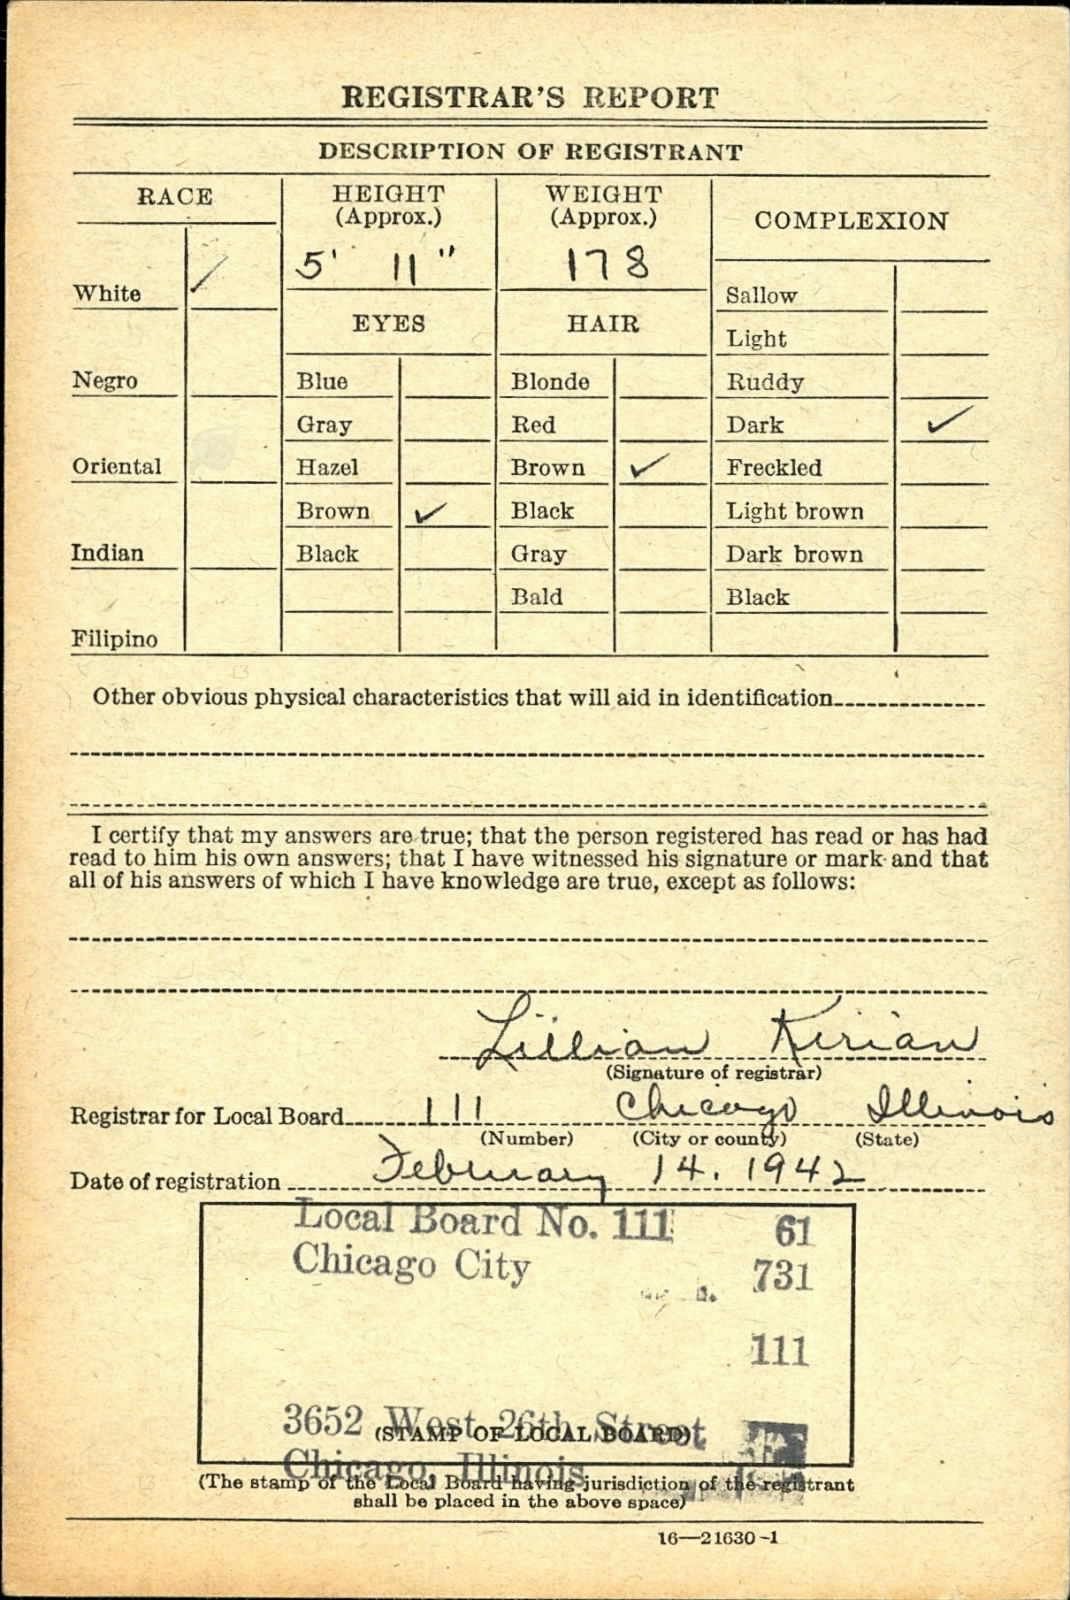 REGISTRAR'S REPORT
DESCRIPTION OF REGISTRANT
RACE
HEIGHT
(Approx.)
WEIGHT
(Approx.)
COMPLEXION
White ✓
5' 11"
178
Sallow
EYES
HAIR
Light
Negro
Blue
Blonde
Ruddy
Gray
Red
Dark ✓
Oriental
Hazel
Brown ✓
Freckled
Brown ✓
Black
Light brown
Indian
Black
Gray
Dark brown
Bald
Black
Filipino
Other obvious physical characteristics that will aid in identification
I certify that my answers are true; that the person registered has read or has had
read to him his own answers; that I have witnessed his signature or mark and that
all of his answers of which I have knowledge are true, except as follows:
Lillian Kirian
(Signature of registrar)
Registrar for Local Board 111 Chicago Illinois
(Number) (City or county) (State)
Date of registration February 14. 1942
Local Board No. 111 61
Chicago City 731
111
3652 West 26th Street
(STAMP OF LOCAL BOARD)
Chicago, Illinois
(The stamp of the Local Board having jurisdiction of the registrant
shall be placed in the above space)
16—21630-1